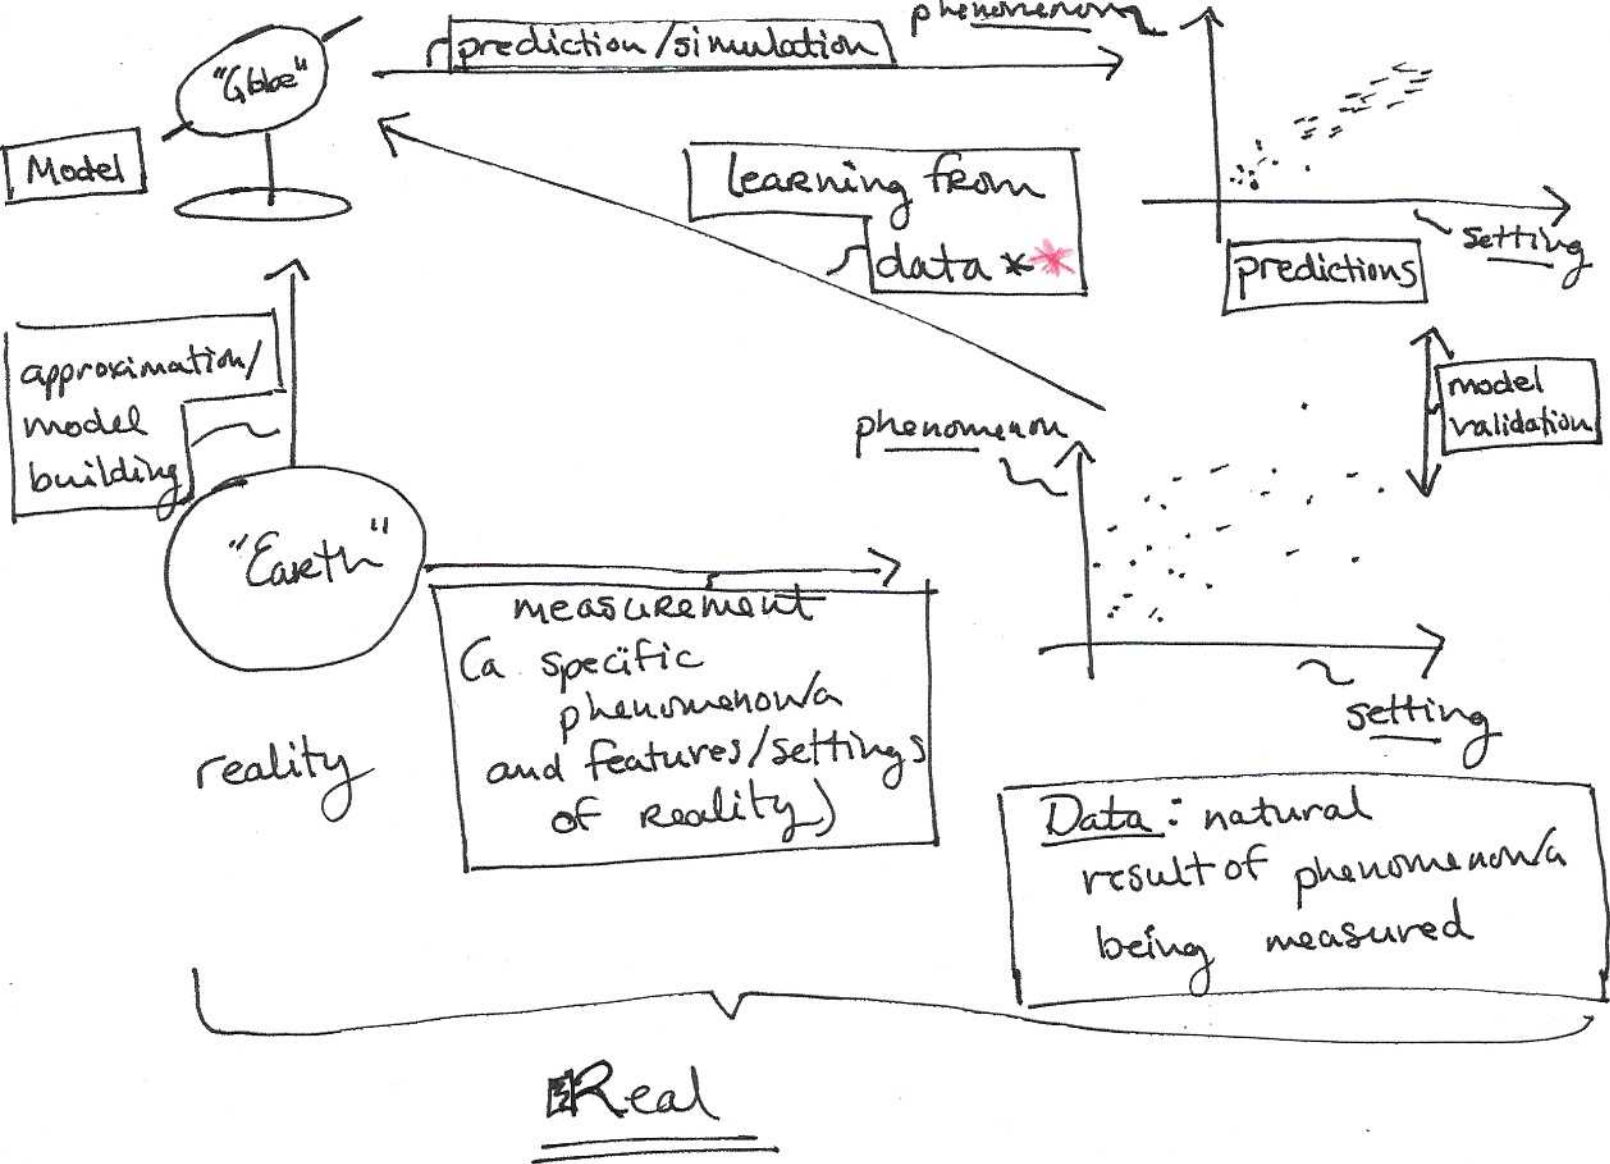 phenomenon
prediction/simulation
"Globe"
Model
learning from
data **
setting
predictions
approximation/
model
building
model
validation
phenomenon
"Earth"
measurement
(a specific
phenomenon/a
and features/settings
of reality)
setting
reality
Data: natural
result of phenomenon/a
being measured
Real